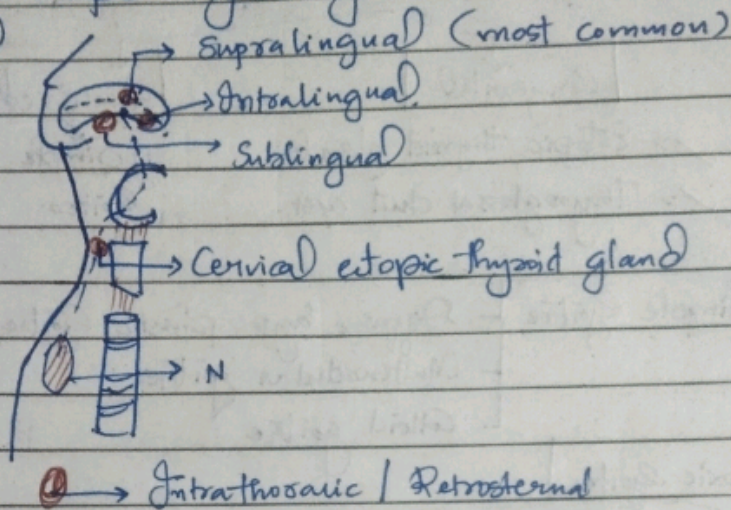 Supralingual (most common)
Intralingual
Sublingual
Cervical ectopic thyroid gland
N
Intrathoracic / Retrosternal